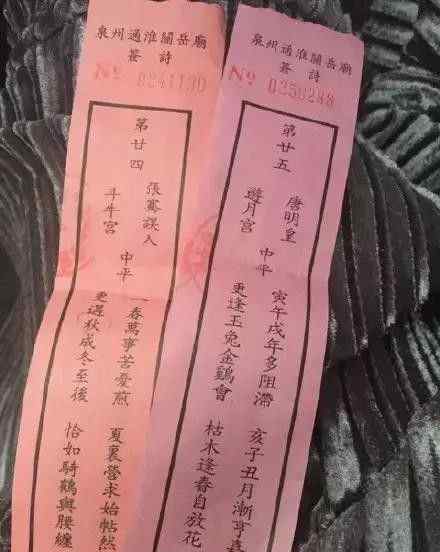 泉州通淮關岳廟
簽詩
Nº
第廿四
張騫誤入
斗牛宮
中平
一春萬事苦憂煎
夏裏營求始帖然
更遇秋成冬至後
恰如騎鶴與腰纏
泉州通淮關岳廟
簽詩
Nº
第廿五
唐明皇
遊月宮
中平
寅午戌年多阻滯
亥子丑月漸亨嘉
更逢玉兔金鷄會
枯木逢春自放花